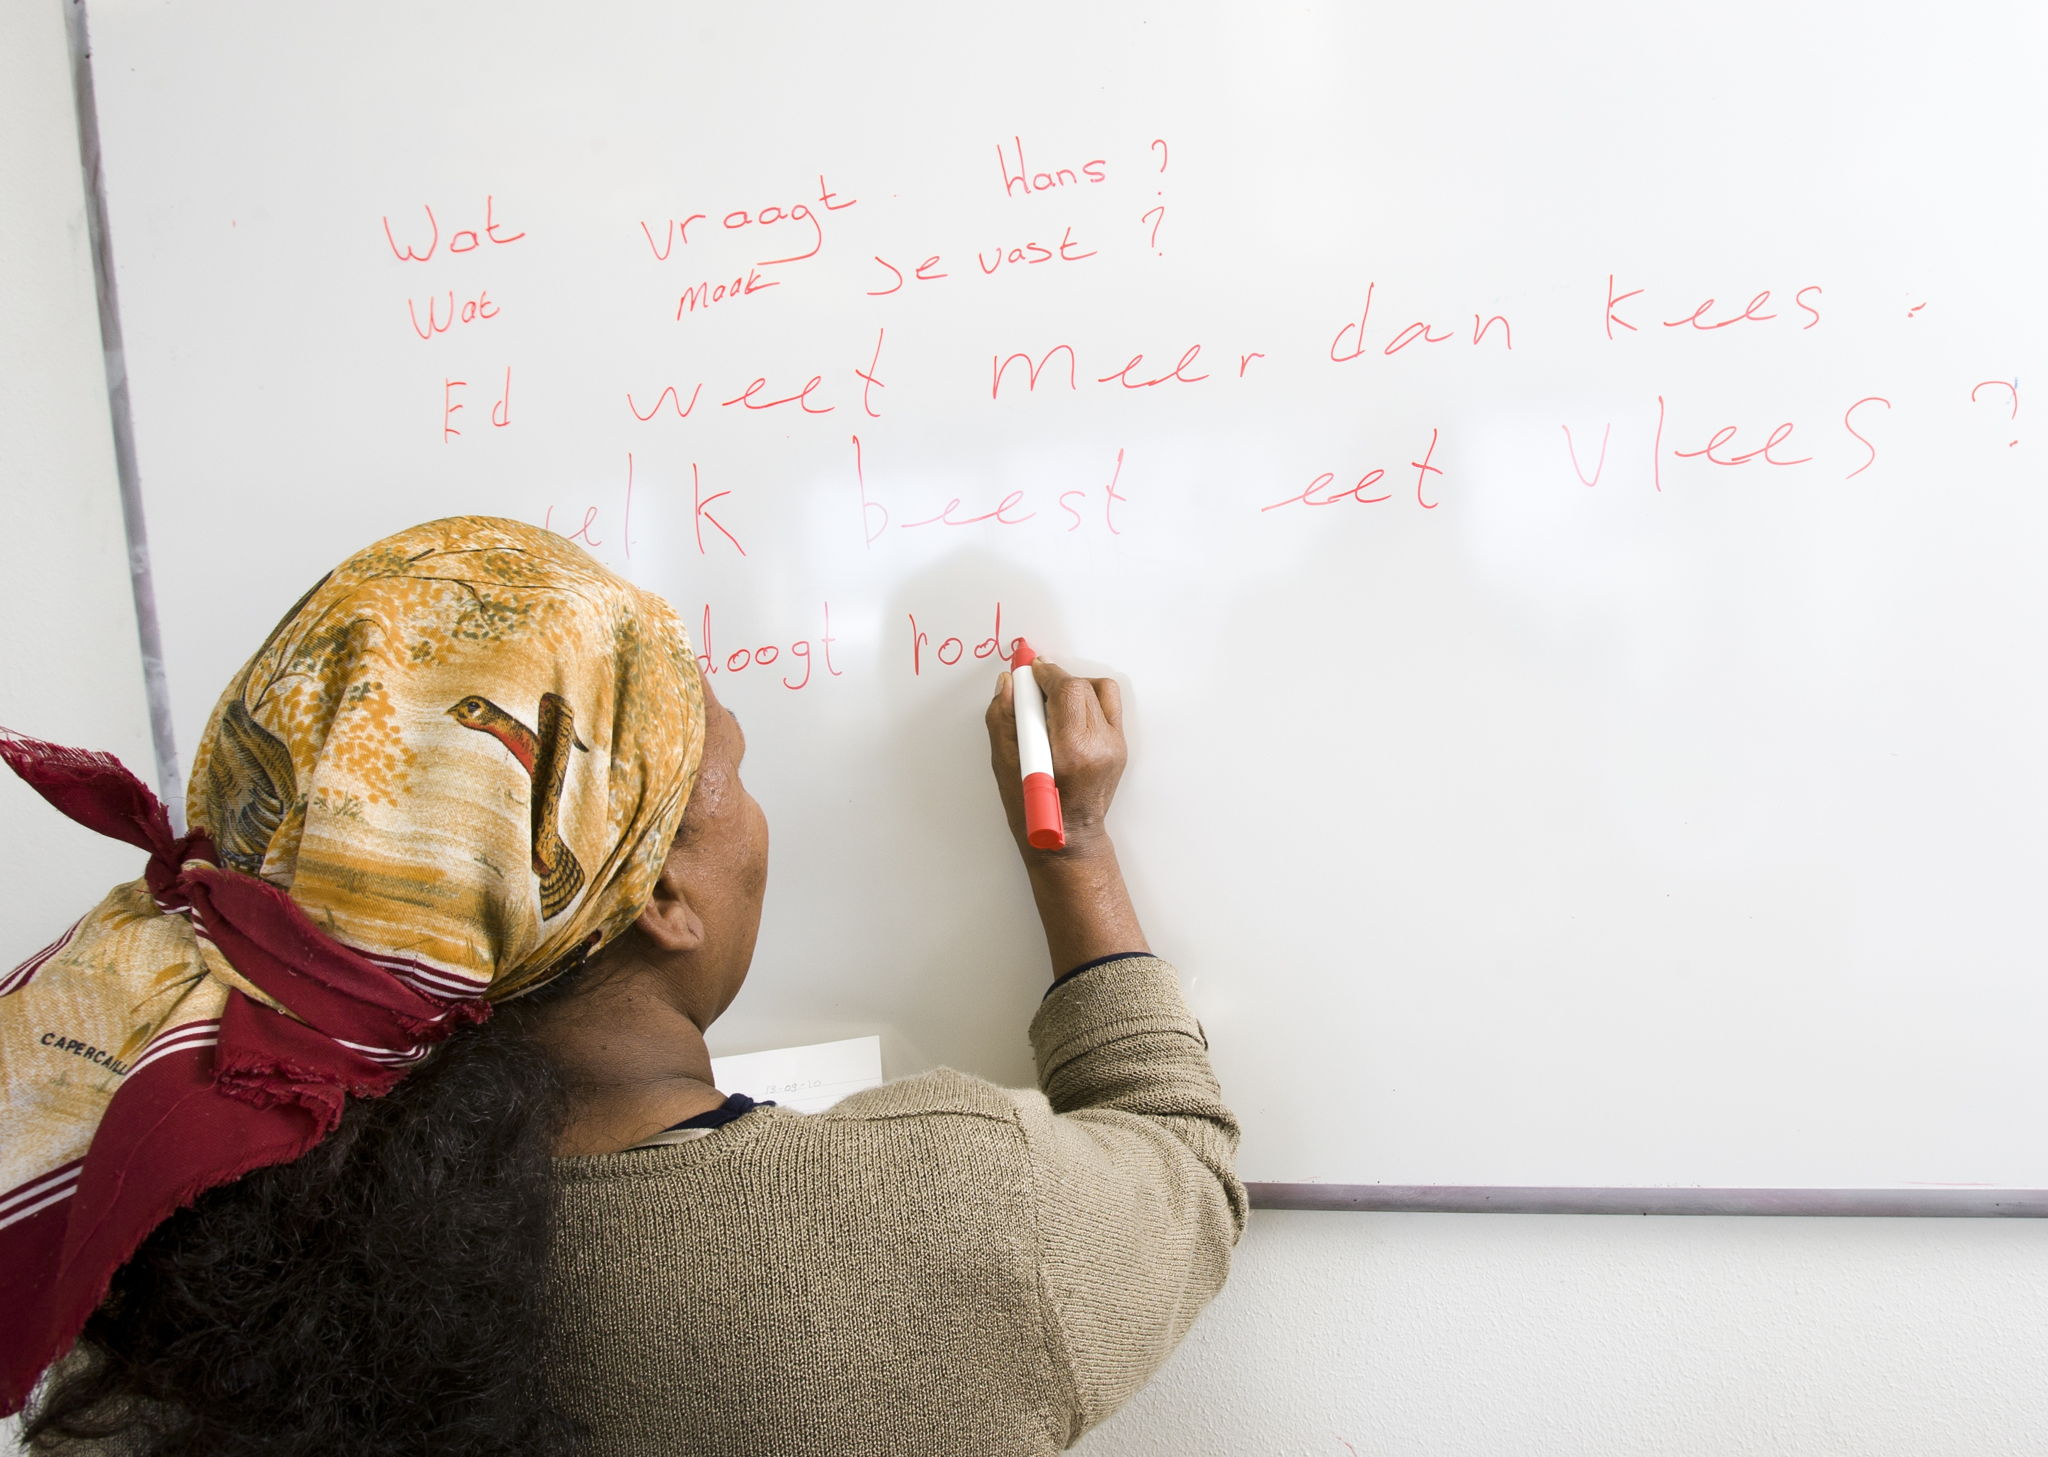 Wat vraagt Hans?
Wat maak Je vast?
Ed weet meer dan kees.
elk beest eet vlees?
doogt rode
CAPERCAILL
13-03-10